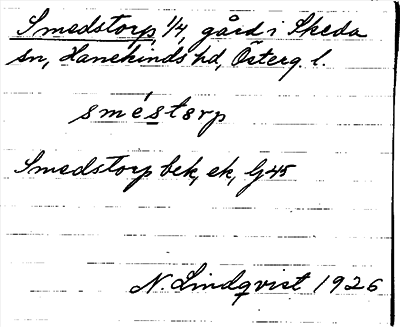 Smedstorp, 1/4, gård i Skeda
sn, Hanekinds hd, Österg. l.
sméstɷrp
Smedstorp bek, ek, Gj 45
N. Lindqvist 1926